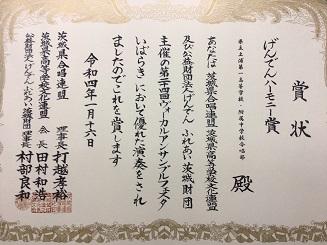 賞状
げんでんハーモニー賞
県立土浦第一高等学校・附属中学校合唱部
殿
あなたは茨城県合唱連盟茨城県高等学校文化連盟
及び公益財団法人げんでんふれあい茨城財団
主催の第二十四回ヴォーカルアンサンブルフェスタ
いばらきにおいて優れた演奏をされ
ましたのでこれを賞します
令和四年一月十六日
茨城県合唱連盟 理事長 打越孝裕
茨城県高等学校文化連盟 会長 田村和浩
公益財団法人げんでんふれあい茨城財団 理事長 村部良和